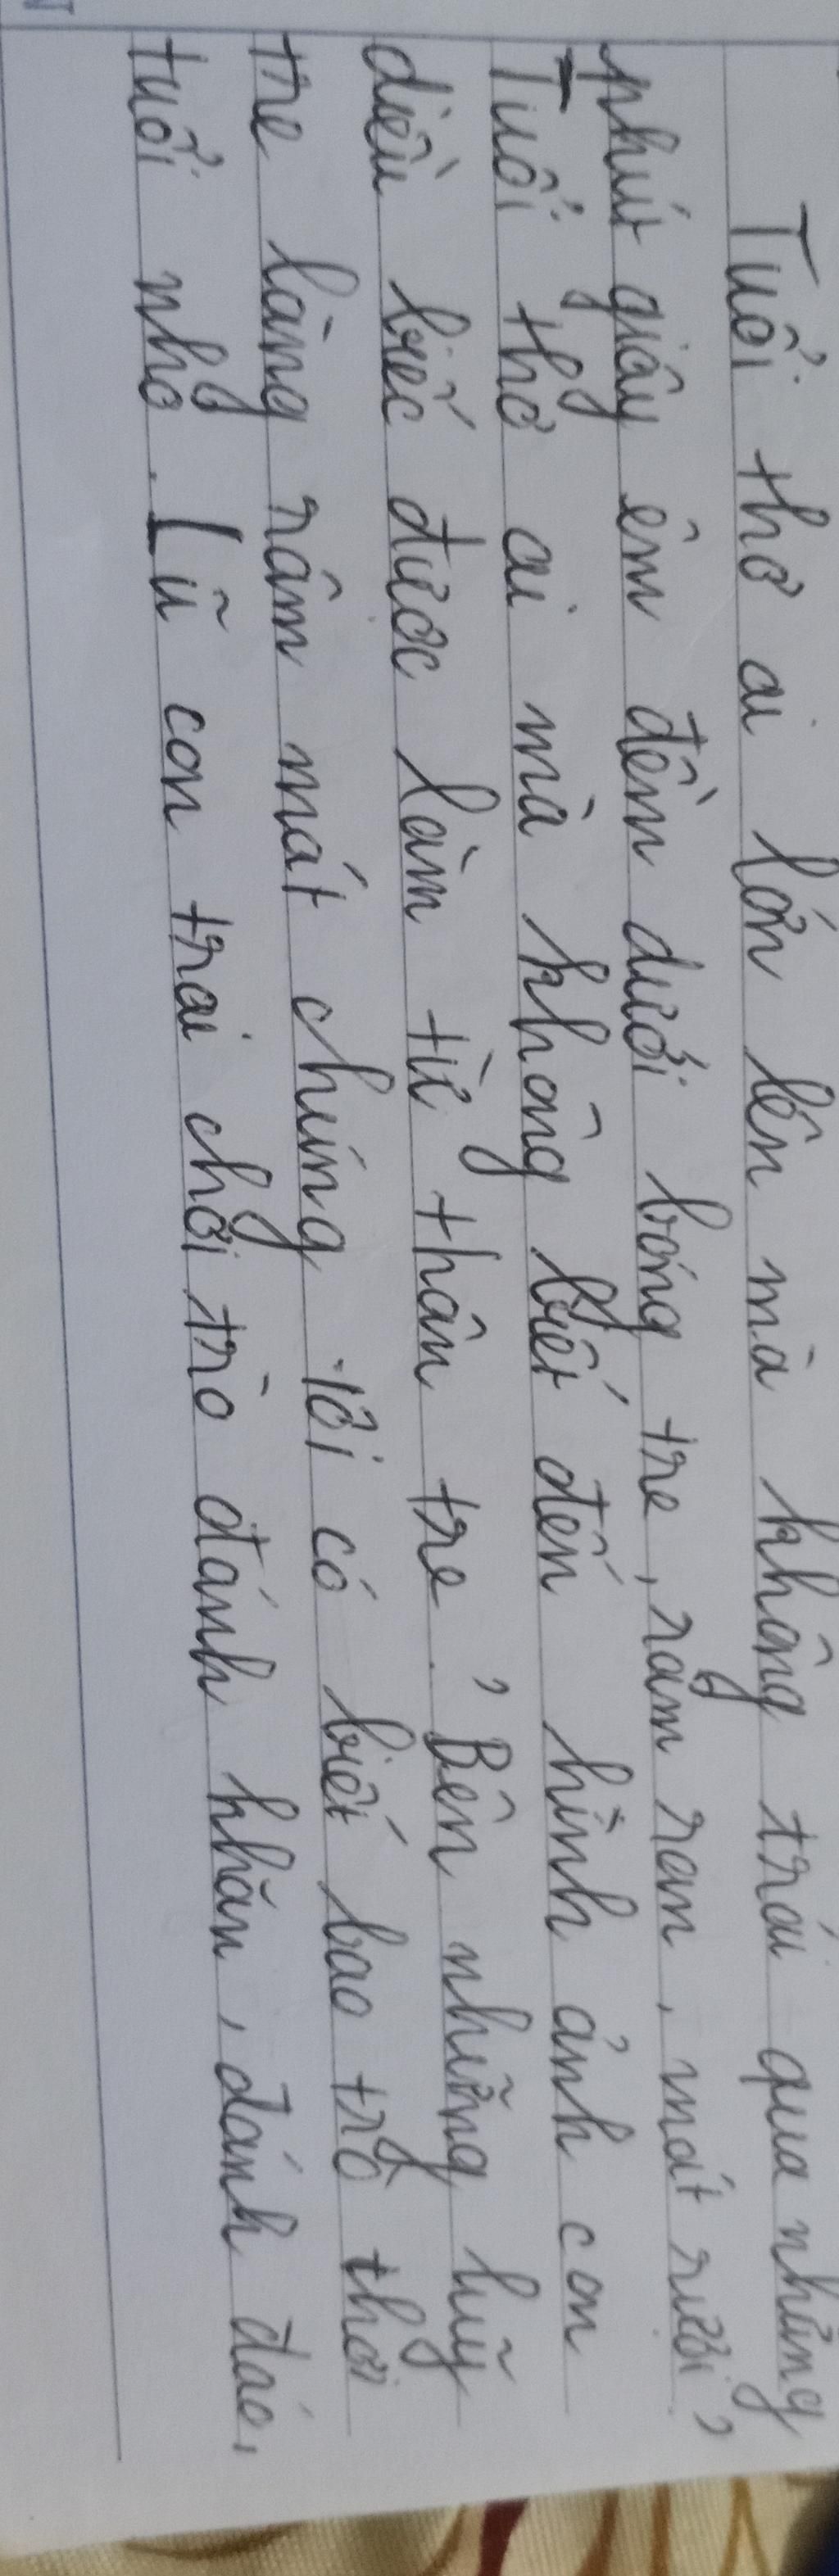 Tuổi thơ ai lớn lên mà không trải qua những
phút giây êm đềm dưới bóng tre, rậm ran, mát rượi?
Tuổi thơ ai mà không biết đến hình ảnh con
diều biếc được làm từ thân tre? Bên những lũy
tre làng râm mát chúng tôi có biết bao trò thời
tuổi nhỏ. Lũ con trai chơi trò đánh khăn, đánh đáo,